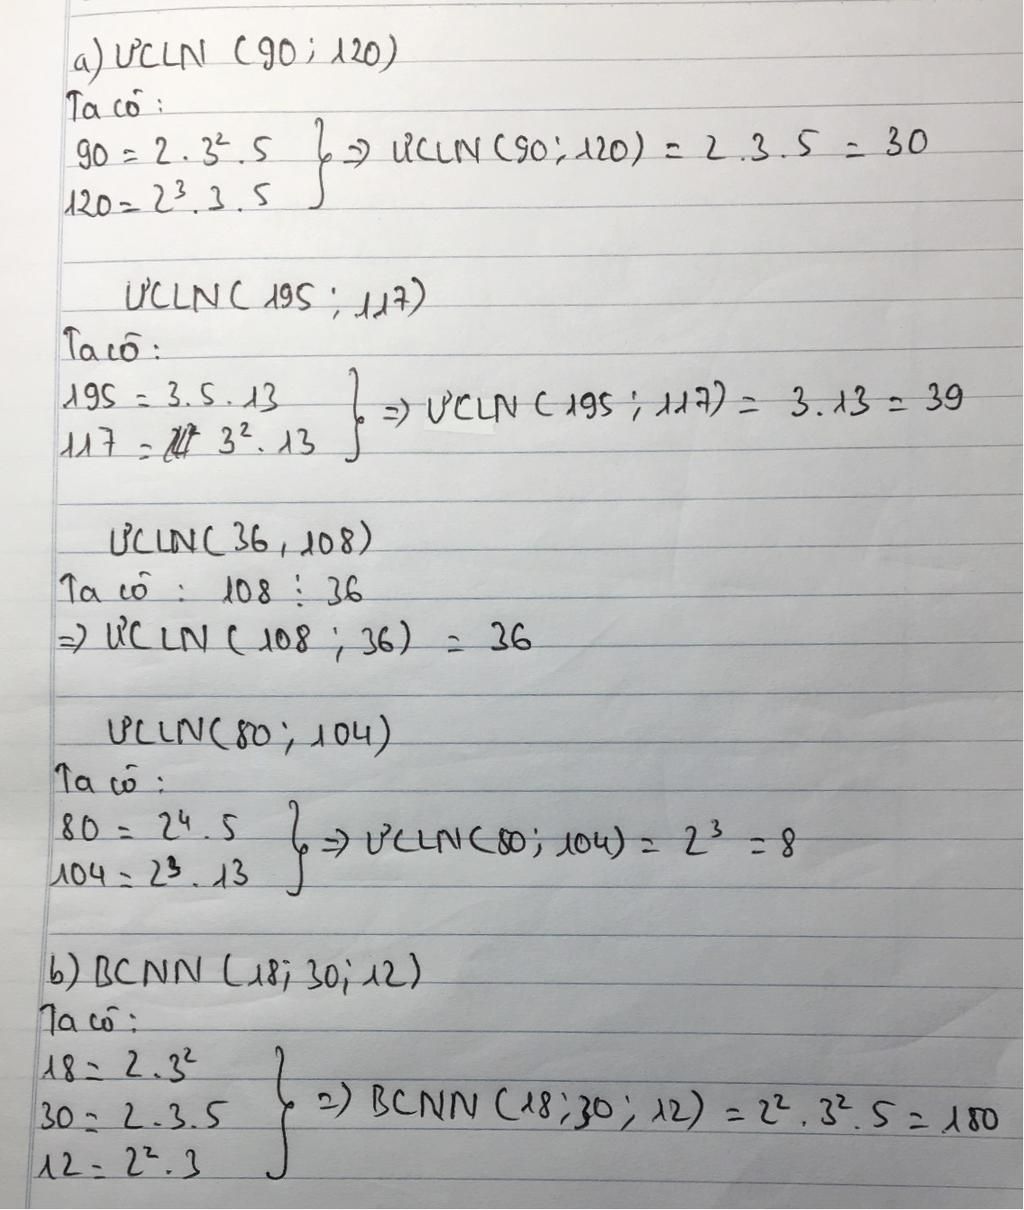 a) ƯCLN (90; 120)
Ta có:
90 = 2 . 3² . 5
120 = 2³ . 3 . 5
} => ƯCLN (90; 120) = 2 . 3 . 5 = 30
ƯCLN ( 195 ; 117)
Ta có:
195 = 3 . 5 . 13
117 = 3² . 13
} => ƯCLN ( 195 ; 117) = 3 . 13 = 39
ƯCLN ( 36 , 108)
Ta có : 108 ⋮ 36
=> ƯCLN ( 108 ; 36) = 36
ƯCLN (80 ; 104)
Ta có :
80 = 2⁴ . 5
104 = 2³ . 13
} => ƯCLN (80; 104) = 2³ = 8
b) BCNN (18; 30; 12)
Ta có:
18 = 2 . 3²
30 = 2 . 3 . 5
12 = 2² . 3
} => BCNN (18 ; 30 ; 12) = 2² . 3² . 5 = 180